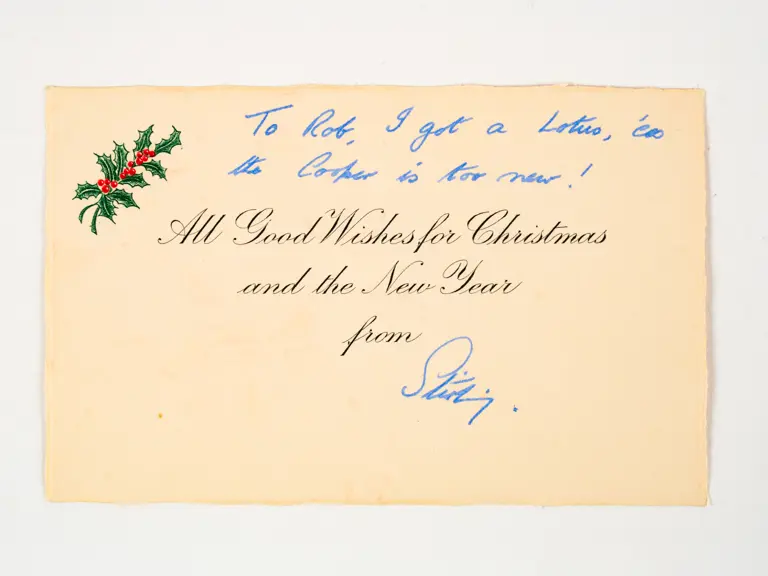 To Rob, I got a Lotus, 'cos
the Cooper is too new!
All Good Wishes for Christmas
and the New Year
from
Stirling.